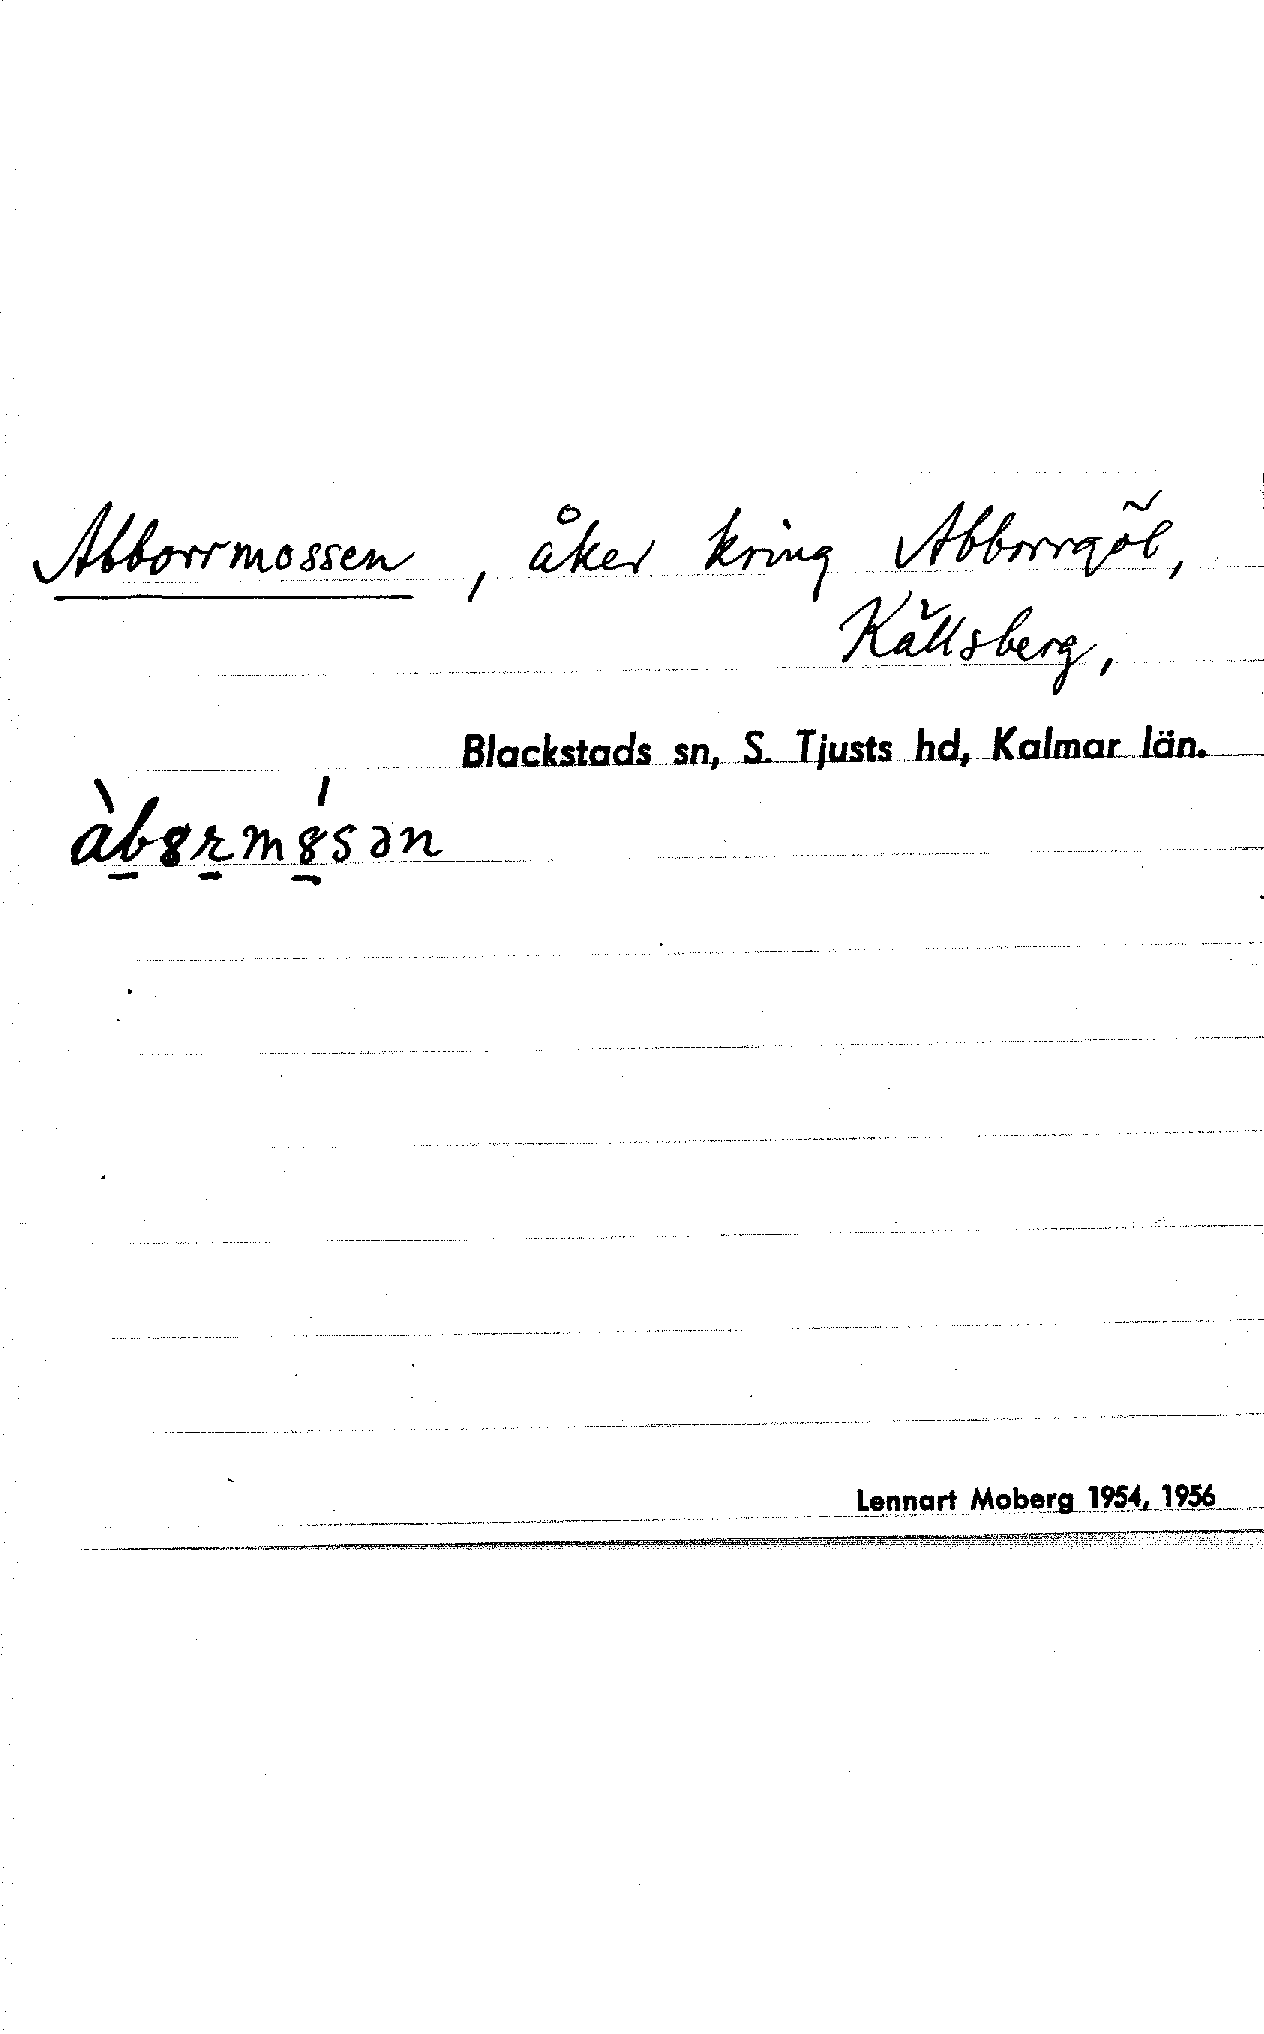 Abborrmossen, åker kring Abborrgöl,
Källsberg,
Blackstads sn, S. Tjusts hd, Kalmar län.
àb̲ȣr̲mȣ̲́sən
Lennart Moberg 1954, 1956